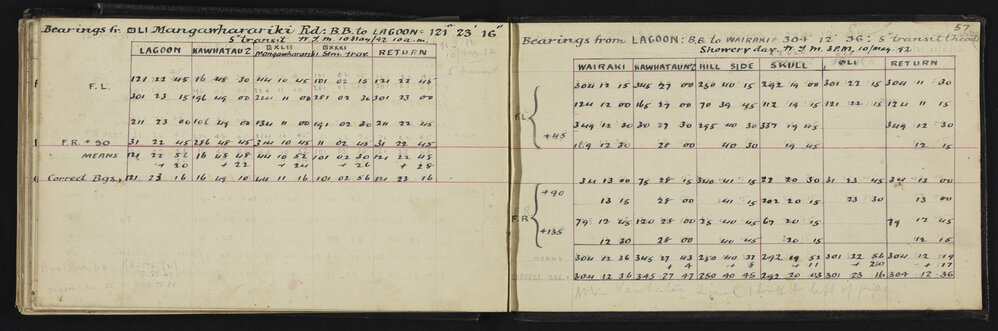 Bearings fr. ⊡LI Mangawharariki Rd: B.B. to LAGOON = 121° 23' 16"
5" transit W.J.M. 10 May/42 10 a.m.
LAGOON KAWHATAU 2 ⊡XLII Mangawharariki ⊡XXXI Stm. trav. RETURN
F.L. 121 22 45 16 48 30 44 10 45 101 02 15 121 22 45
301 23 15 196 49 00 224 11 00 281 02 30 301 23 00
211 23 00 106 49 00 134 11 00 191 02 30 211 22 45
F.R. + 90 31 22 45 286 48 45 314 10 45 11 02 45 31 22 45
MEANS 121 22 56 16 48 48 44 10 52 101 02 30 121 22 48
+ 20 + 22 + 24 + 26 + 28
Corred Bgs. 121 23 16 16 49 10 44 11 16 101 02 56 121 23 16
57
Bearings from LAGOON: B.B. to WAIRAKI = 304° 12' 36": 5" transit theod
Showery day. W.J.M. 3 P.M. 10/May. 42
WAIRAKI KAWHATAU 2 HILL SIDE SKULL ⊡LI RETURN
F.L. 304 12 15 345 27 00 250 40 15 292 19 00 301 22 15 304 11 30
124 12 00 165 27 00 70 39 45 112 19 15 121 22 15 124 11 15
+45 349 12 30 30 27 30 295 40 30 337 19 45 349 12 30
169 12 30 28 00 40 30 19 45 12 15
+90 34 13 00 75 28 15 340 41 15 22 20 30 31 23 45 34 13 00
F.R. 13 15 28 00 41 15 202 20 15 23 30 13 00
+135 79 12 45 120 28 00 25 40 45 67 20 15 79 12 45
12 30 28 00 40 45 20 15 12 15
MEANS 304 12 36 345 27 43 250 40 37 292 19 52 301 22 56 304 12 19
+ 4 + 8 + 11 + 20 + 17
CORRECT BGS. 304 12 36 345 27 47 250 40 45 292 20 03 301 23 16 304 12 36
Note Kawhatau Signal 1 link left of pipe